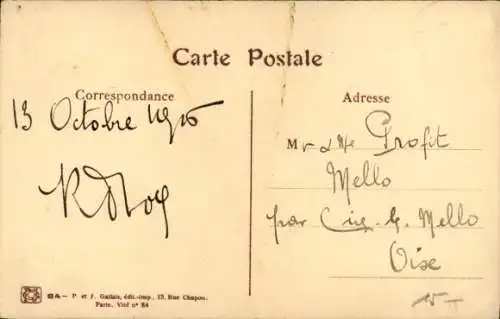 Carte Postale
Correspondance
13 Octobre 1916
Adresse
Mr & Me Profit
Mello
par Cire-l-Mello
Oise
15-
P. et J. Gallais, édit.-imp., 13, Rue Chapon,
Paris. Visé n° 84